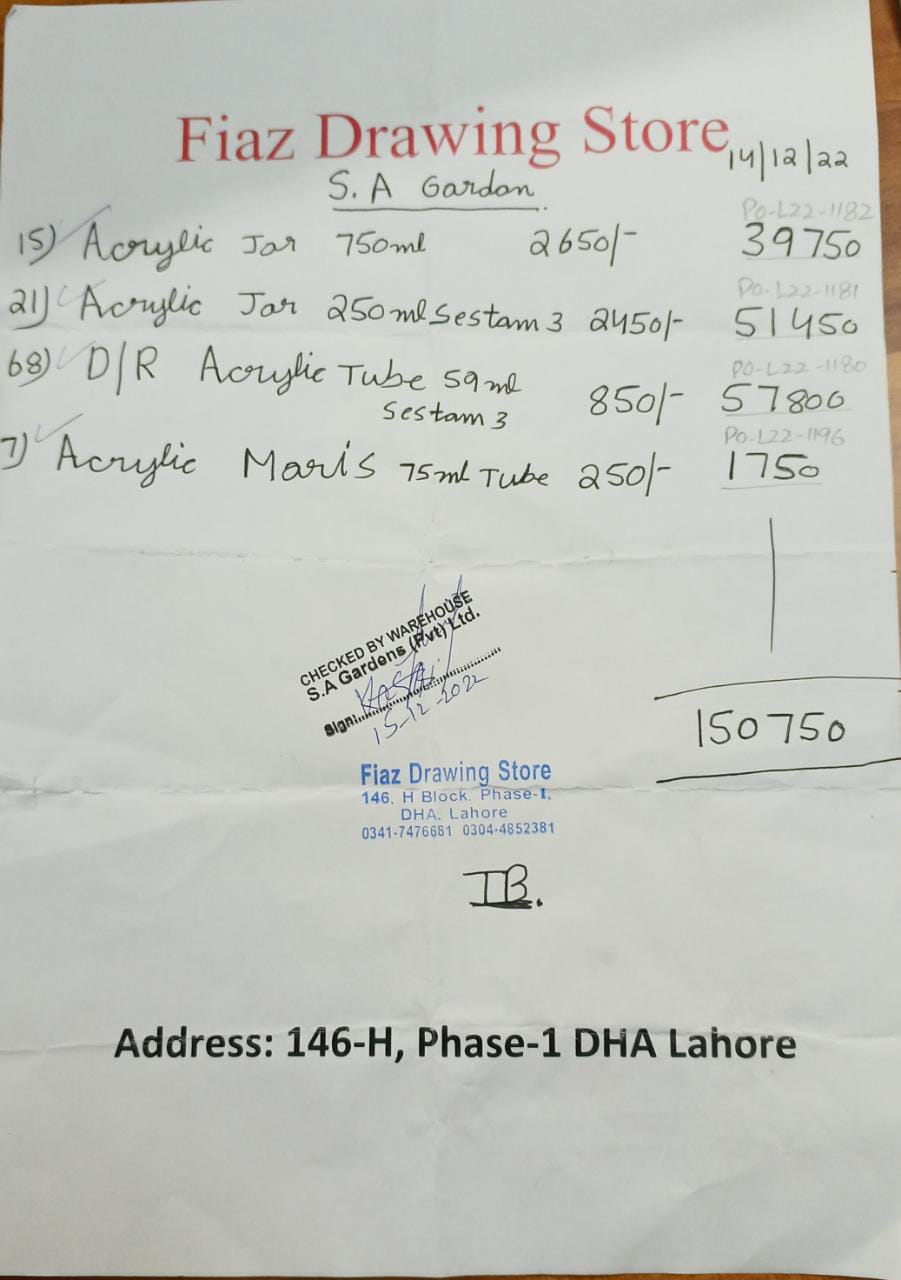 Fiaz Drawing Store
14/12/22
S. A Gardan
PO-L22-1182
15) Acrylic Jar 750ml 2650/- 39750
PO-L22-1181
21) Acrylic Jar 250ml Sestam 3 2450/- 51450
PO-L22-1180
68) D/R Acrylic Tube 59ml
Sestam 3 850/- 57800
PO-L22-1196
7) Acrylic Maris 75ml Tube 250/- 1750
150750
CHECKED BY WAREHOUSE
S.A Gardens (Pvt) Ltd.
Sign:
15-12-2022
Fiaz Drawing Store
146, H Block. Phase-I,
DHA, Lahore
0341-7476681 0304-4852381
IB.
Address: 146-H, Phase-1 DHA Lahore